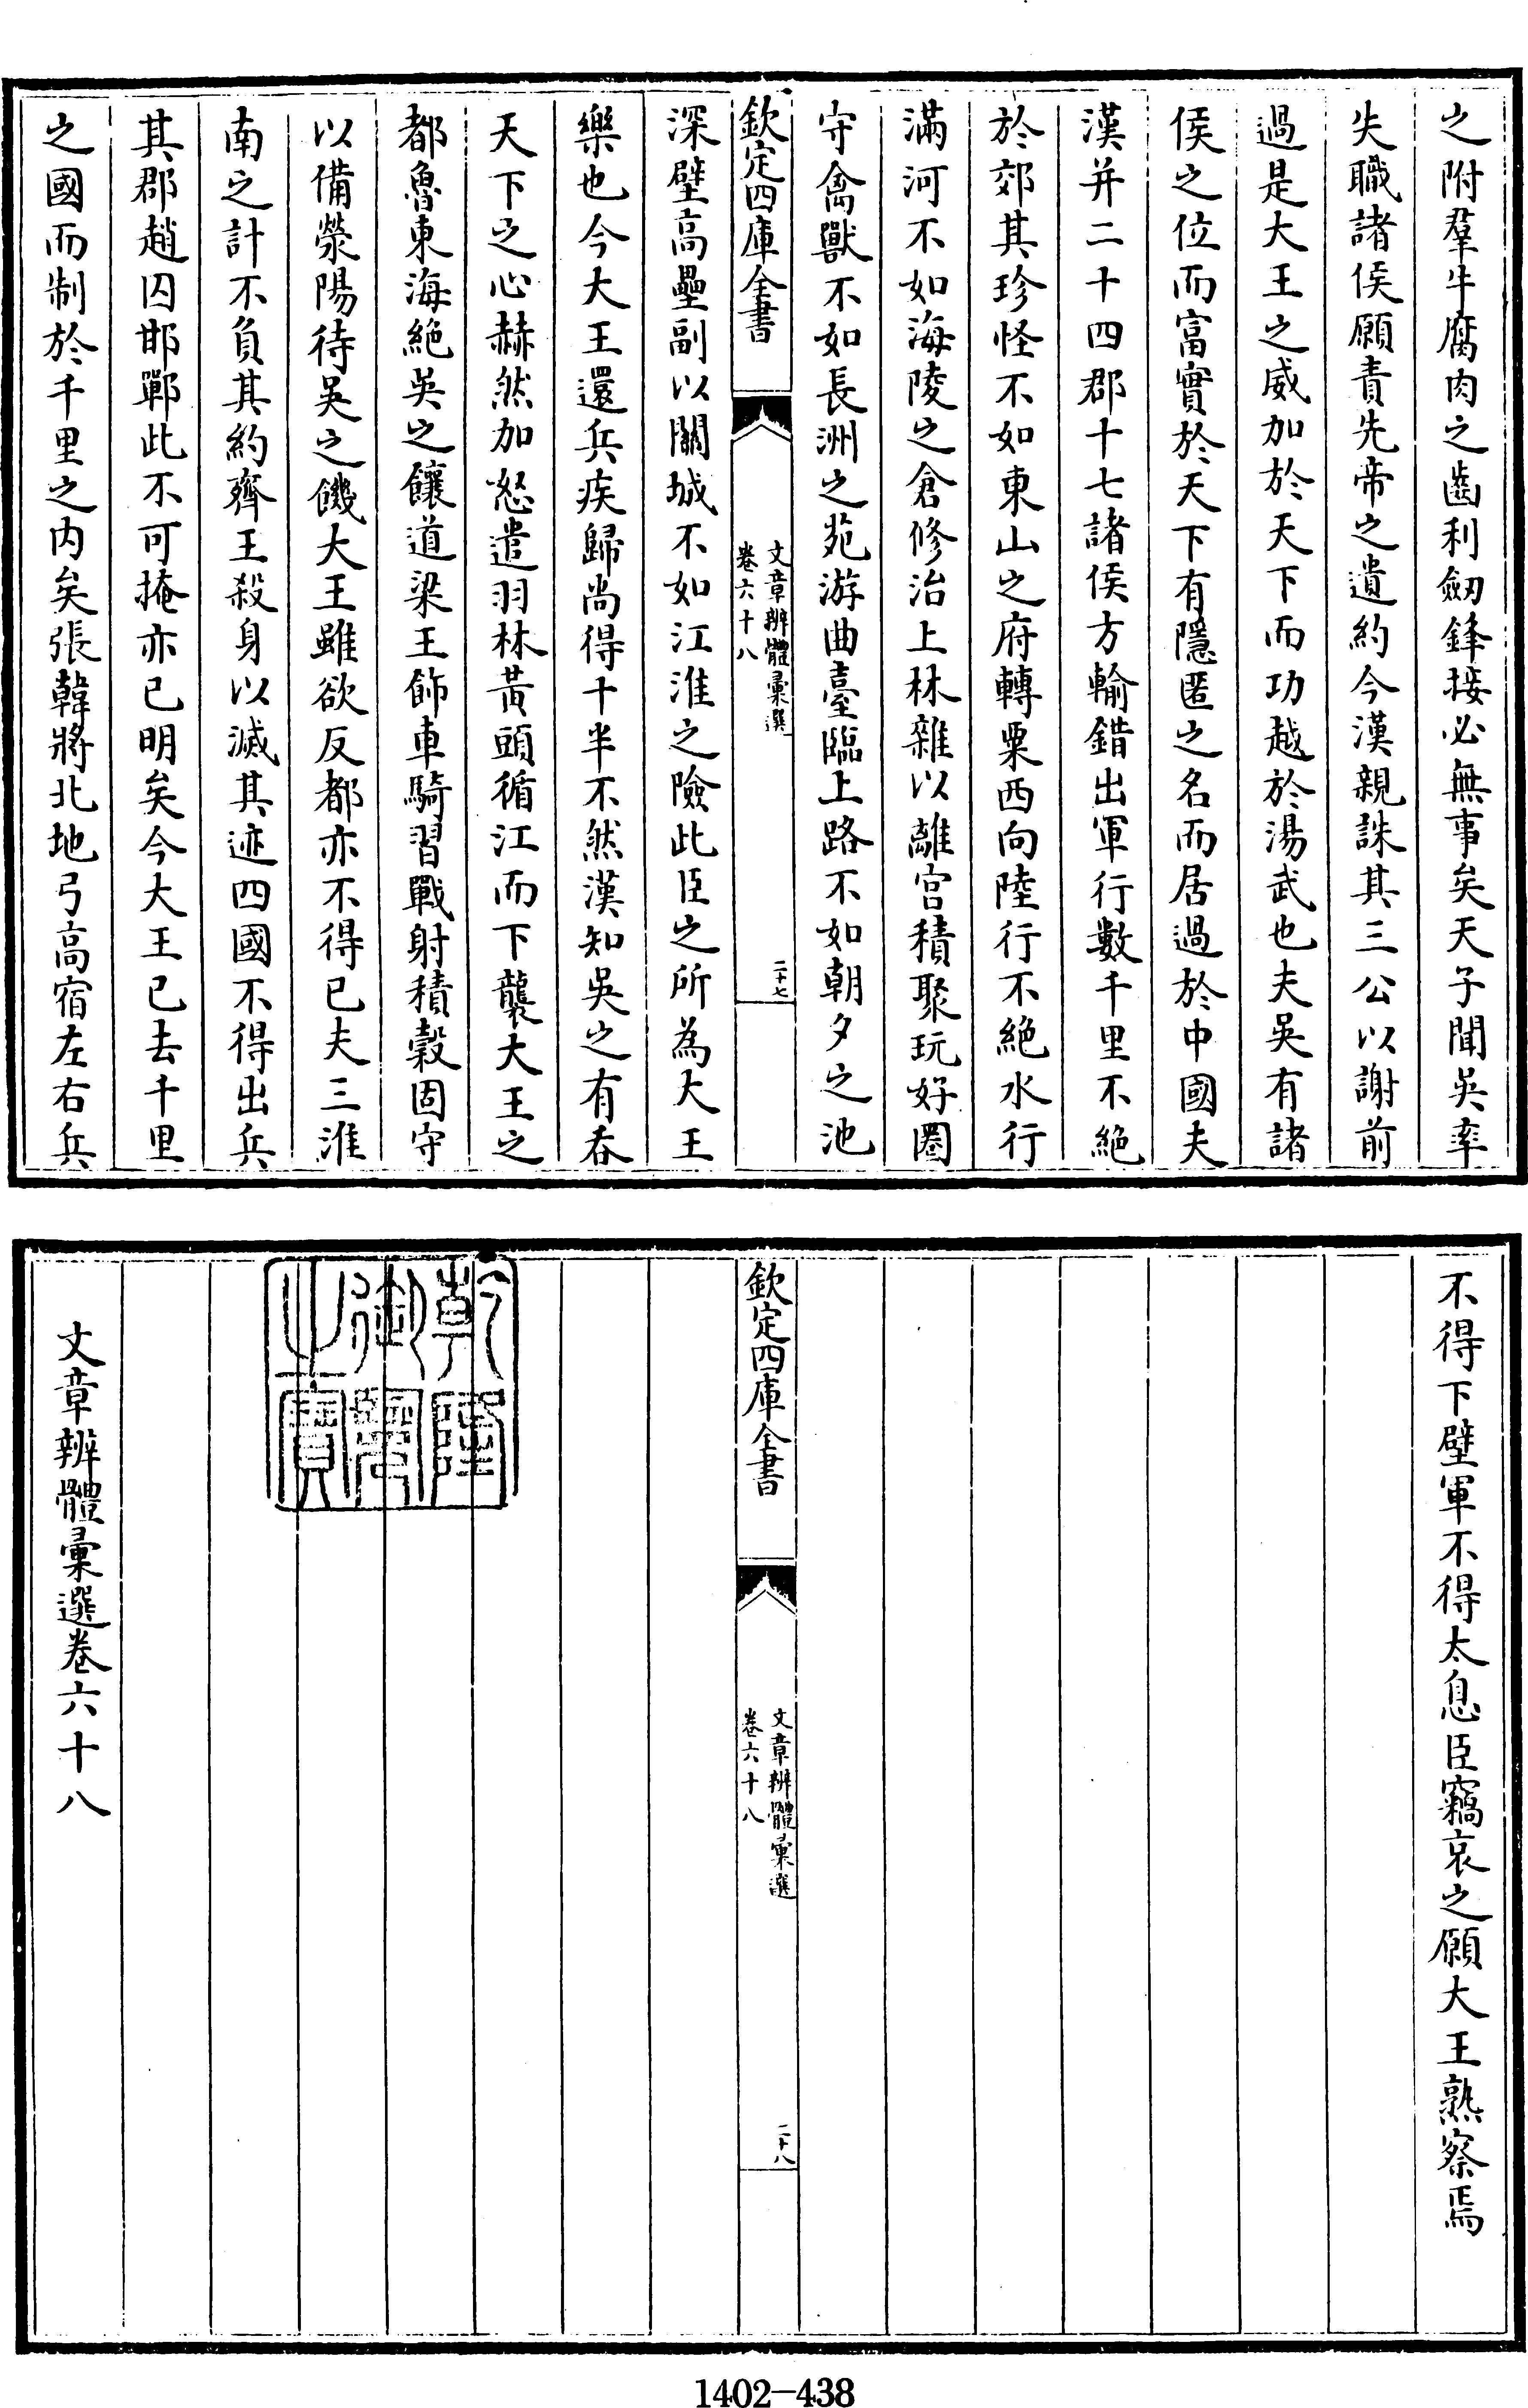 之附羣牛腐肉之齒利劒鋒接必無事矣天子聞吳率
失職諸侯願責先帝之遺約今漢親誅其三公以謝前
過是大王之威加於天下而功越於湯武也夫吳有諸
侯之位而富實於天下有隱匿之名而居過於中國夫
漢并二十四郡十七諸侯方輸錯出軍行數千里不絕
於郊其珍怪不如東山之府轉粟西向陸行不絕水行
滿河不如海陵之倉修治上林雜以離宫積聚玩好圈
守禽獸不如長洲之苑游曲臺臨上路不如朝夕之池
欽定四庫全書
文章辨體彙選
卷六十八
二十七
深壁高壘副以關城不如江淮之險此臣之所為大王
樂也今大王還兵疾歸尚得十半不然漢知吳之有吞
天下之心赫然加怒遣羽林黃頭循江而下襲大王之
都魯東海絶吳之饟道梁王飾車騎習戰射積榖固守
以備滎陽待吳之饑大王雖欲反都亦不得已夫三淮
南之計不負其約齊王殺身以滅其迹四國不得出兵
其郡趙囚邯鄲此不可掩亦已明矣今大王已去千里
之國而制於千里之内矣張韓將北地弓高宿左右兵
不得下壁軍不得太息臣竊哀之願大王熟察焉
欽定四庫全書
文章辨體彙選
卷六十八
二十八
乾隆
御覽
之寶
文章辨體彙選卷六十八
1402-438